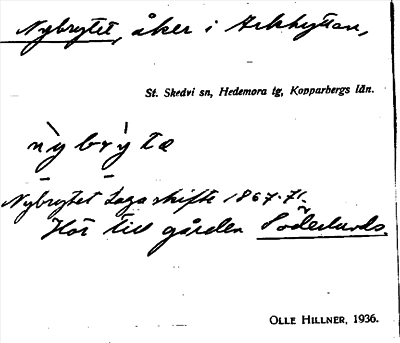 Nybrytet, åker i Arkhyttan,
St. Skedvi sn, Hedemora tg, Kopparbergs län.
nỳbrỳtæ
Nybrytet Laga skifte 1867-71.
Hör till gården Söderlunds.
OLLE HILLNER, 1936.